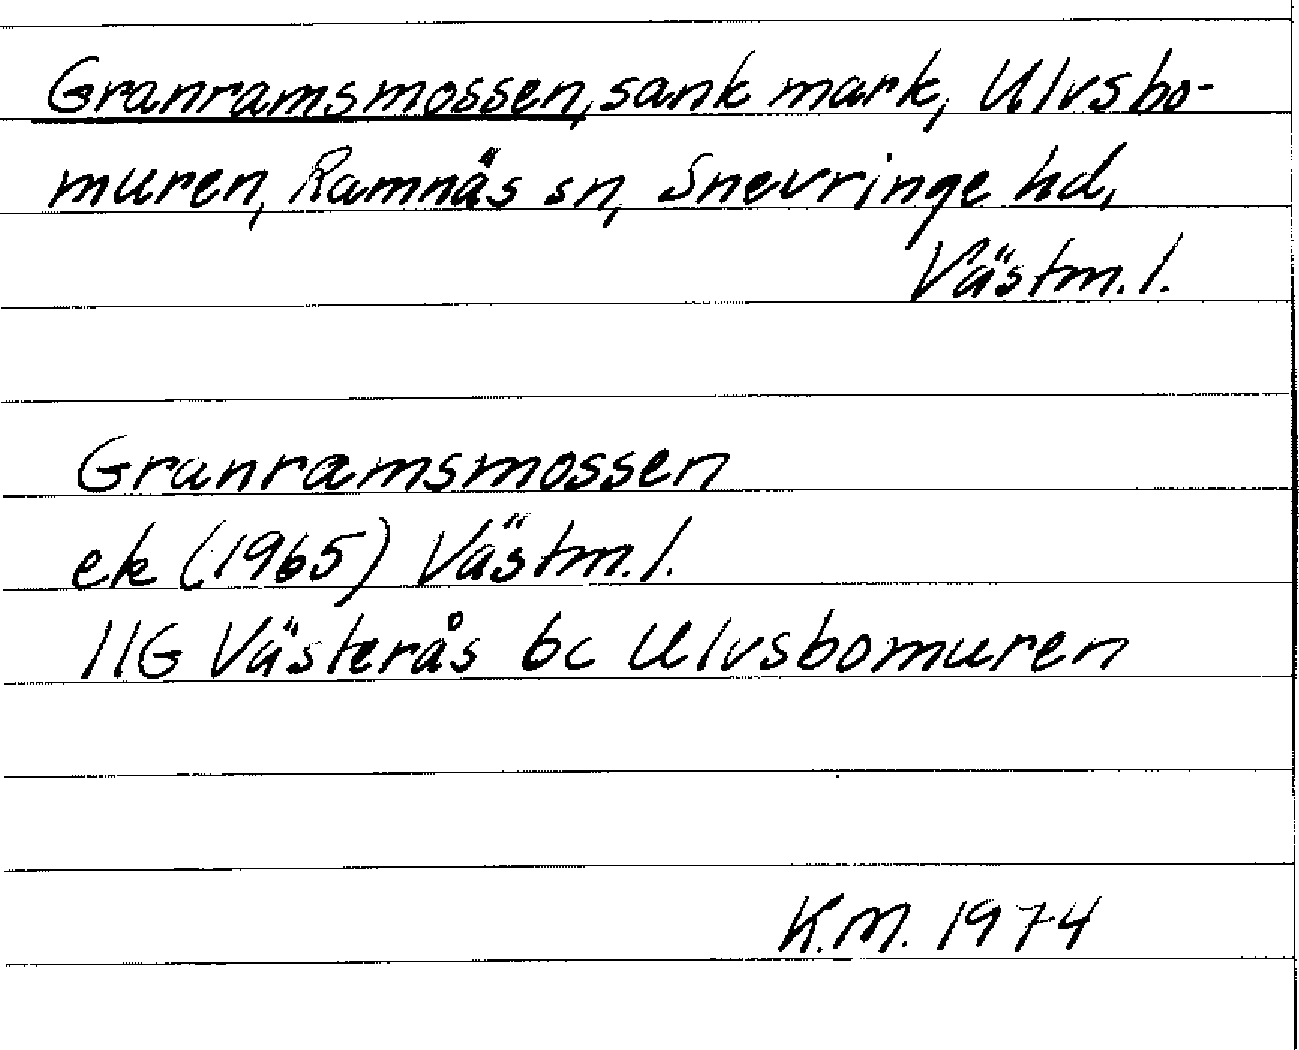 Granramsmossen, sank mark, Ulvsbo-
muren, Ramnäs sn, Snevringe hd,
Västm. l.
Granramsmossen
ek (1965) Västm. l.
11G Västerås 6c Ulvsbomuren
K.M. 1974